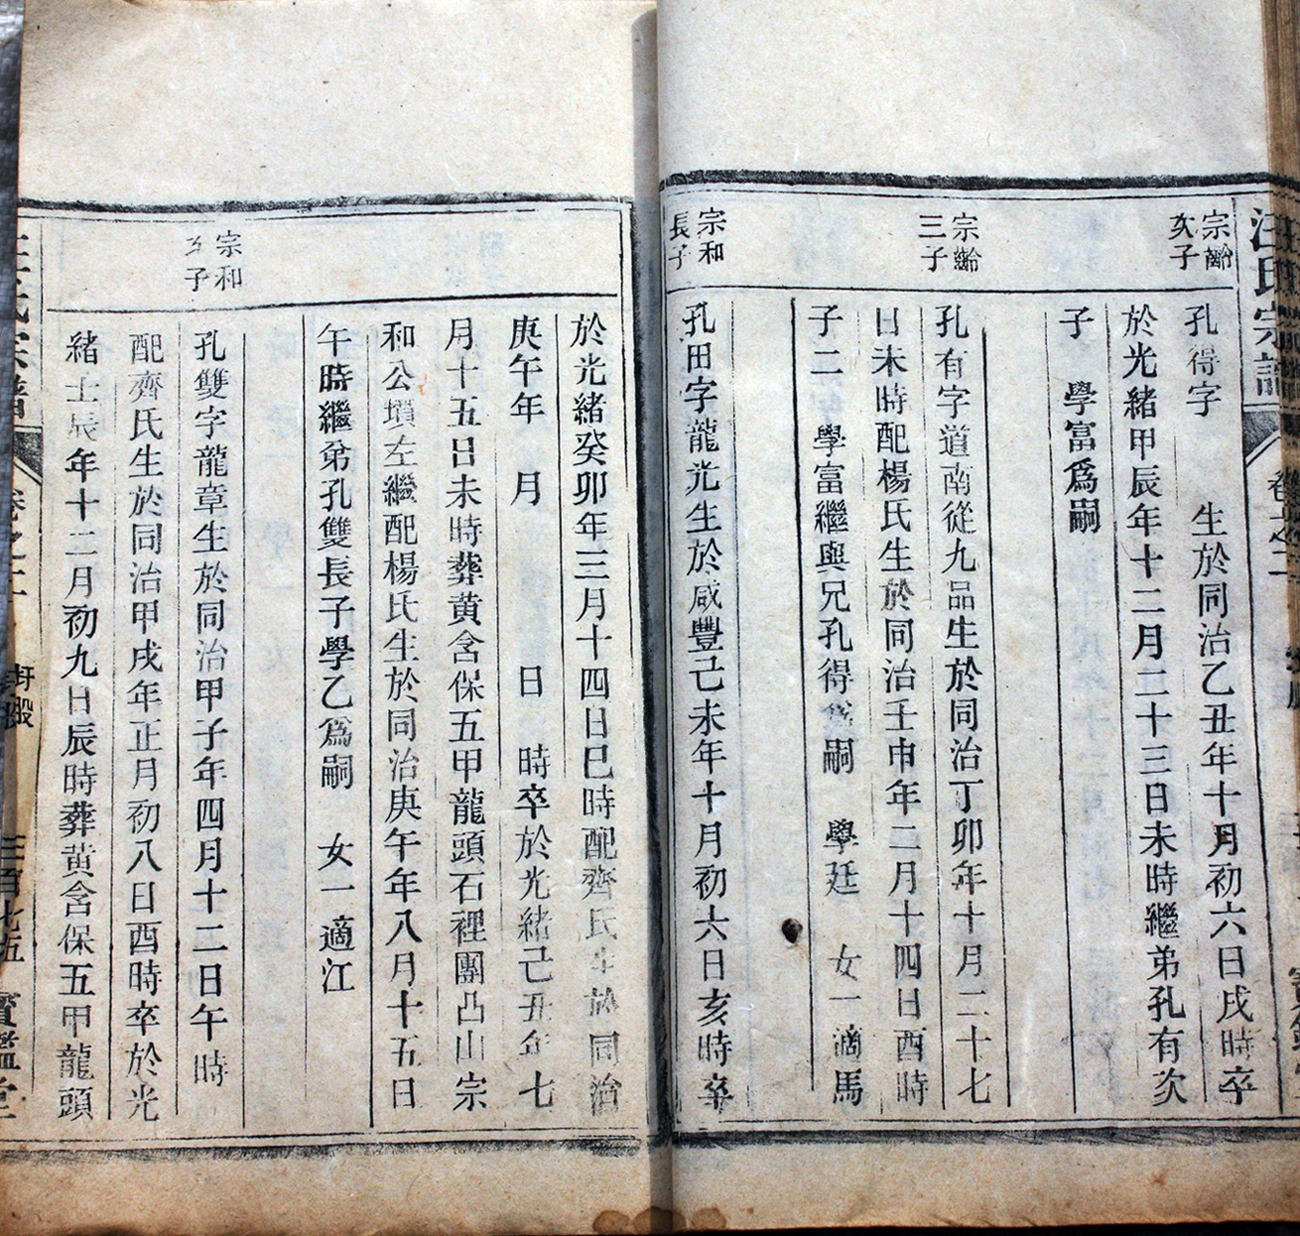 汪氏宗譜
卷六之二
宗齡
次子
孔得字 生於同治乙丑年十月初六日戌時卒
於光緒甲辰年十二月二十三日未時繼弟孔有次
子 學富爲嗣
宗齡
三子
孔有字道南從九品生於同治丁卯年十月二十七
日未時配楊氏生於同治壬申年二月十四日酉時
子二 學富繼與兄孔得爲嗣 學廷 女一適馬
宗和
長子
孔田字龍光生於咸豐己未年十月初六日亥時卒
於光緒癸卯年三月十四日巳時配齊氏生於同治
庚午年 月 日 時卒於光緒己丑年七
月十五日未時葬黄含保五甲龍頭石裡團凸山宗
和公墳左繼配楊氏生於同治庚午年八月十五日
午時繼弟孔雙長子學乙爲嗣 女一適江
宗和
次子
孔雙字龍章生於同治甲子年四月十二日午時
配齊氏生於同治甲戌年正月初八日酉時卒於光
緒壬辰年十二月初九日辰時葬黄含保五甲龍頭
汪氏宗譜
卷六之二
三百七五
寶鑑堂